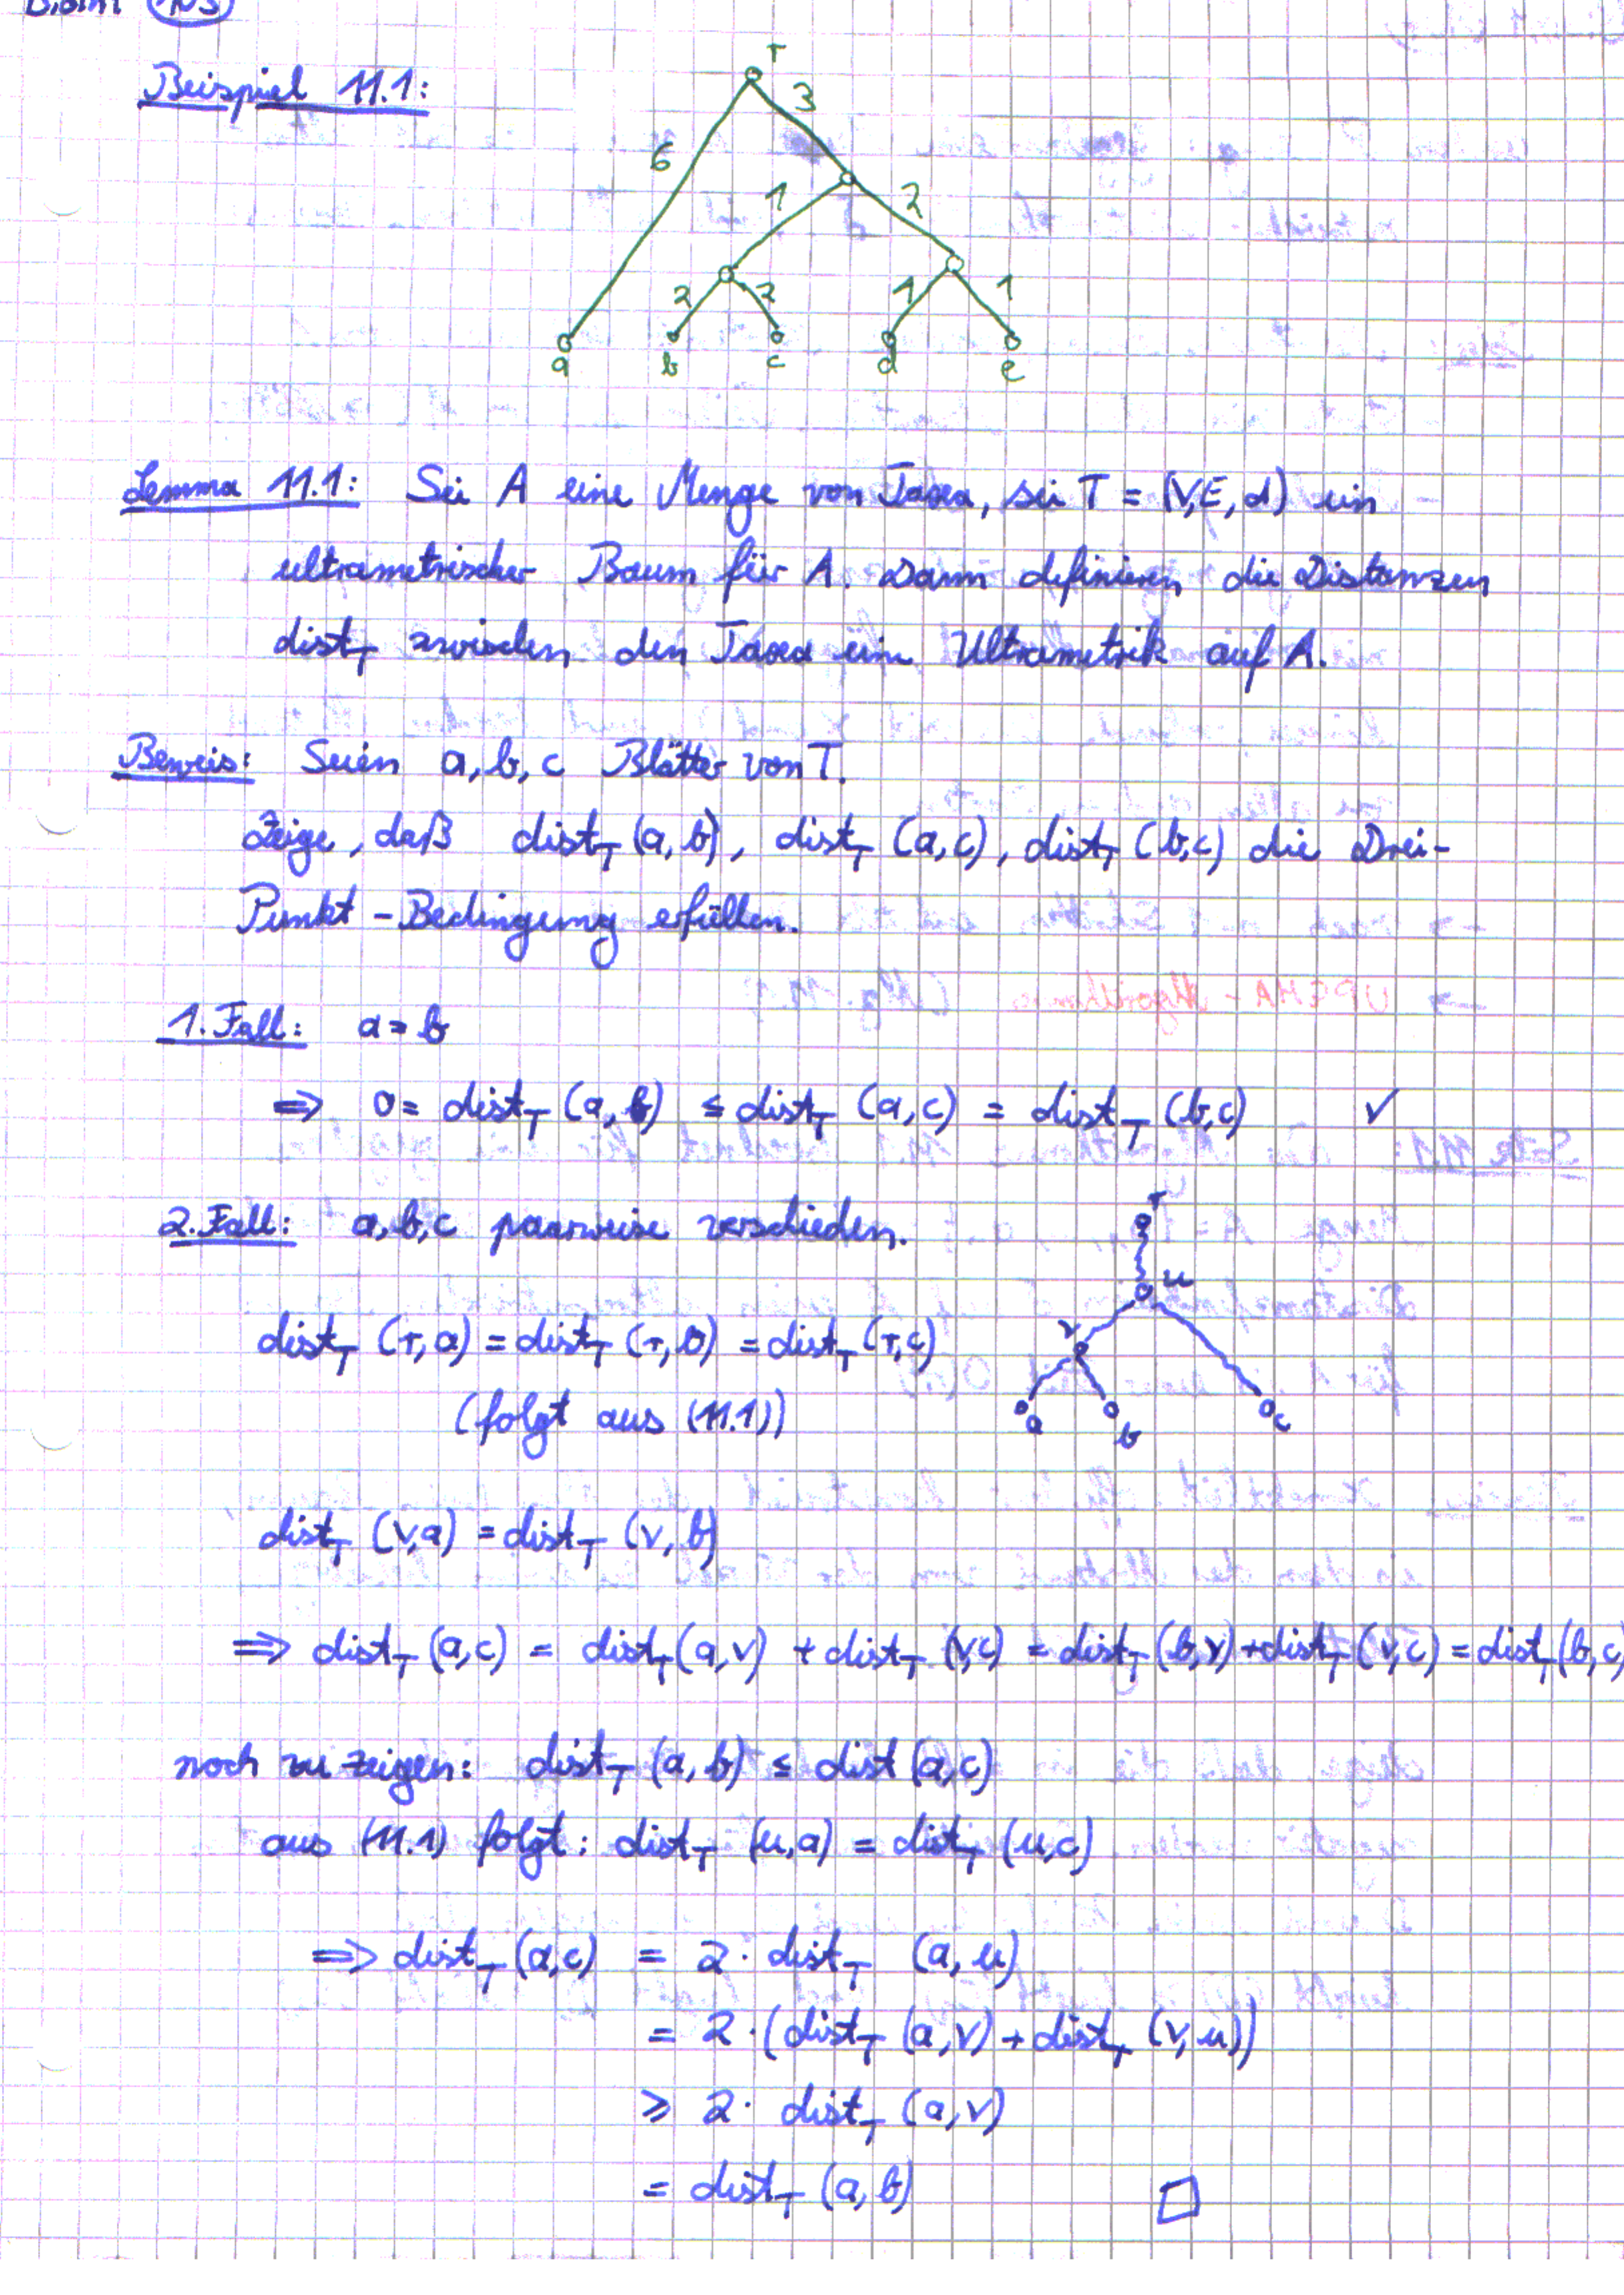 Bioinf 103
Beispiel 11.1:
r
3
6
1 2
2 2 1 1
a b c d e
Lemma 11.1: Sei A eine Menge von Taxa, sei T = (V,E,d) ein
ultrametrischer Baum für A. Dann definieren die Distanzen
dist_T zwischen den Taxa eine Ultrametrik auf A.
Beweis: Seien a, b, c Blätter von T.
Zeige, daß dist_T (a,b), dist_T (a,c), dist_T (b,c) die Drei-
Punkt-Bedingung erfüllen.
1. Fall: a = b
⇒ 0 = dist_T (a,b) ≤ dist_T (a,c) = dist_T (b,c) ✓
2. Fall: a,b,c paarweise verschieden.
r
u
v
a b c
dist_T (r,a) = dist_T (r,b) = dist_T (r,c)
(folgt aus (11.1))
dist_T (v,a) = dist_T (v,b)
⇒ dist_T (a,c) = dist_T (a,v) + dist_T (v,c) = dist_T (b,v) + dist_T (v,c) = dist_T (b,c)
noch zu zeigen: dist_T (a,b) ≤ dist (a,c)
aus (11.1) folgt: dist_T (u,a) = dist_T (u,c)
⇒ dist_T (a,c) = 2 · dist_T (a,u)
= 2 · (dist_T (a,v) + dist_T (v,u))
≥ 2 · dist_T (a,v)
= dist_T (a,b) □